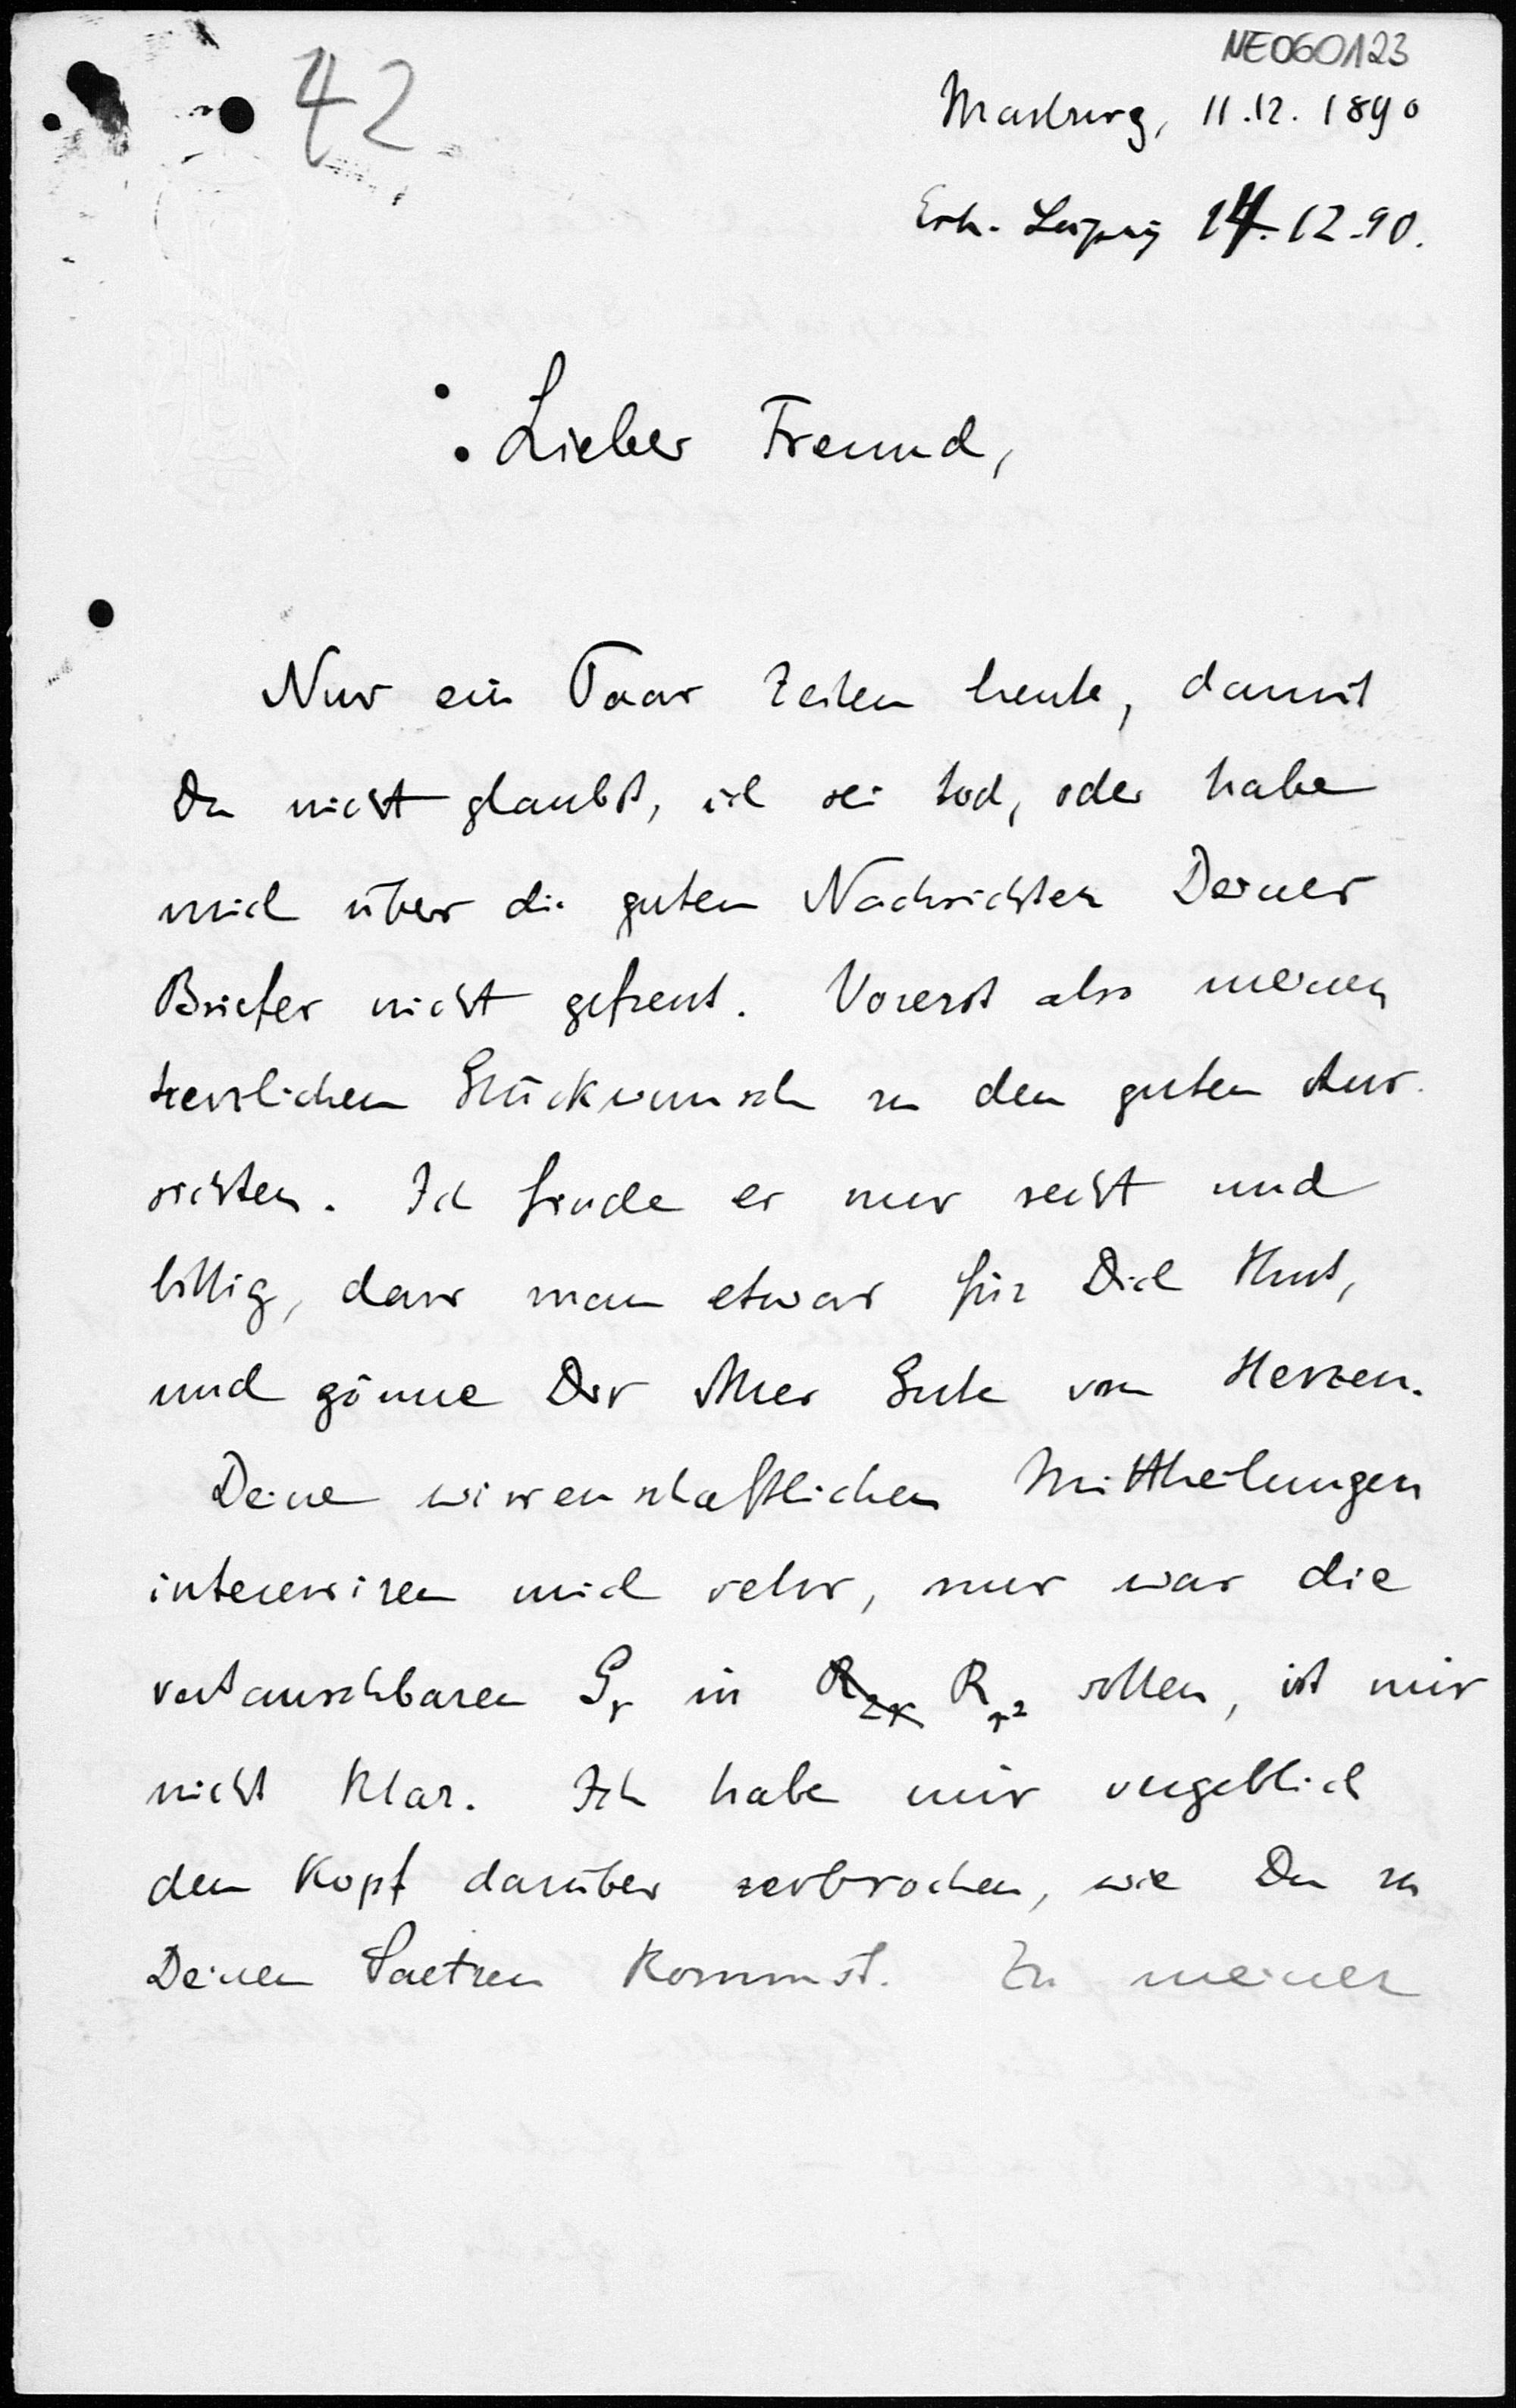 NE060123
42
Marburg, 11.12.1890
Erh. Leipzig 14.12.90.
Lieber Freund,
Nur ein Paar Zeilen heute, damit
Du nicht glaubst, ich sei tod, oder habe
mich über die guten Nachrichten Deiner
Briefes nicht gefreut. Vorerst also meinen
herzlichen Glückwunsch zu den guten Aus-
sichten. Ich finde es nur recht und
billig, dass man etwas für Dich thut,
und gönne Dir Alles Gute von Herzen.
Deine wissenschaftlichen Mittheilungen
interessiren mich sehr, nur was die
vertauschbaren Gr in R2r Rr² sollen, ist mir
nicht klar. Ich habe mir vergeblich
den Kopf darüber zerbrochen, wie Du zu
Deinen Saetzen kommst. Zu meiner